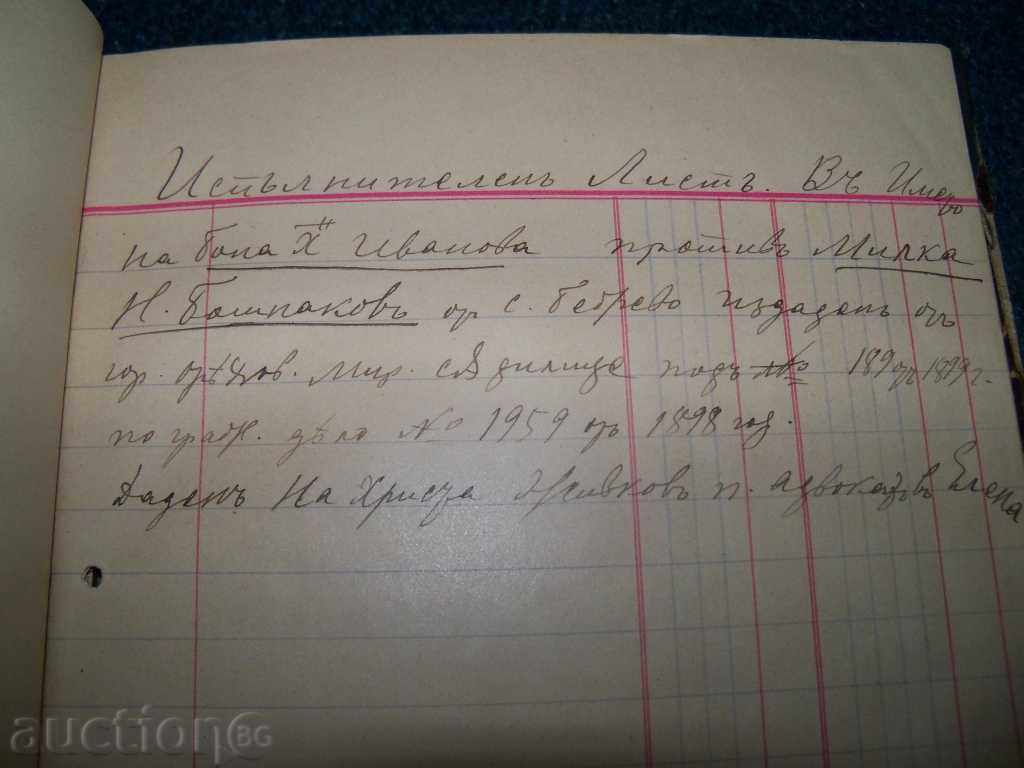 Испълнителенъ Листъ. Въ Имено
на Бона Хⁿ Иванова противъ Милка
Н. Башпаковъ от с. Бебрево издаденъ отъ
гор. орѣхов. Мир. сѫдилище подъ № 189 отъ 1899 г.
по гражд. дѣло № 1959 отъ 1898 год.
Даденъ На Христа Живковъ п. адвокатъ въ Елена
auction BG